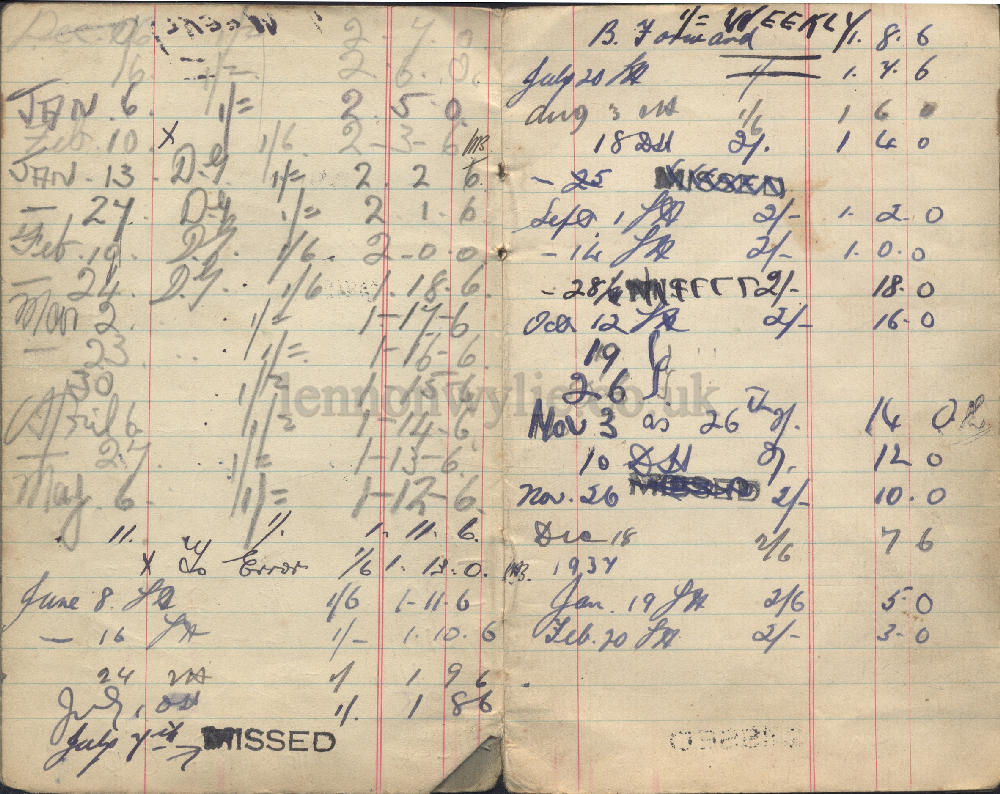 Dec 9 1/= 2 - 7 . 0
16 1/= 2 . 6 . 0
JAN . 6 . 1/= 2 . 5 . 0 .
Feb. 10 . x 1/6 2 - 3 - 6
JAN . 13 D.G. 1/= 2 . 2 6.
— 27 D.G. 1/= 2 1 . 6
Feb. 19 D.G. 1/6 2 - 0 . 0
— 24. D.G. 1/6 1 . 18 . 6
Mar 2 1/= 1 - 17 - 6
— 23 1/= 1 - 16 - 6
30 1/= 1 15 - 6
April 6 1/= 1 - 14 - 6
— 27 1/= 1 - 13 - 6
May 6 - 1/= 1 - 12 - 6
. 11. 1/. 1 . 11 . 6.
x To Error 1/6 1 . 13 . 0.
June 8. 1/6 1 - 11 - 6
— 16 1/- 1 . 10 . 6
24 1/ 1 9 6
July 1 1/. 1 8 6
July MISSED
1/= WEEKLY
B. Forward 1 . 8 . 6
July 20 1/ 1 . 7 . 6
Aug 3 1/6 1 6 0
18 DH 2/. 1 4 0
- 25 MISSED
Sept 1 2/- 1 . 2 . 0
- 14 2/- 1 . 0 . 0
- 28 2/- 18 . 0
Oct 12 2/- 16 - 0
19
26
Nov 3 as 26th 2/. 14 0
10 DH 2/. 12 0
MISSED
Nov. 26 2/- 10 . 0
Dec 18 2/6 7 6
1937
Jan. 19 2/6 5 0
Feb. 20 2/- 3 - 0
lennonwylie.co.uk